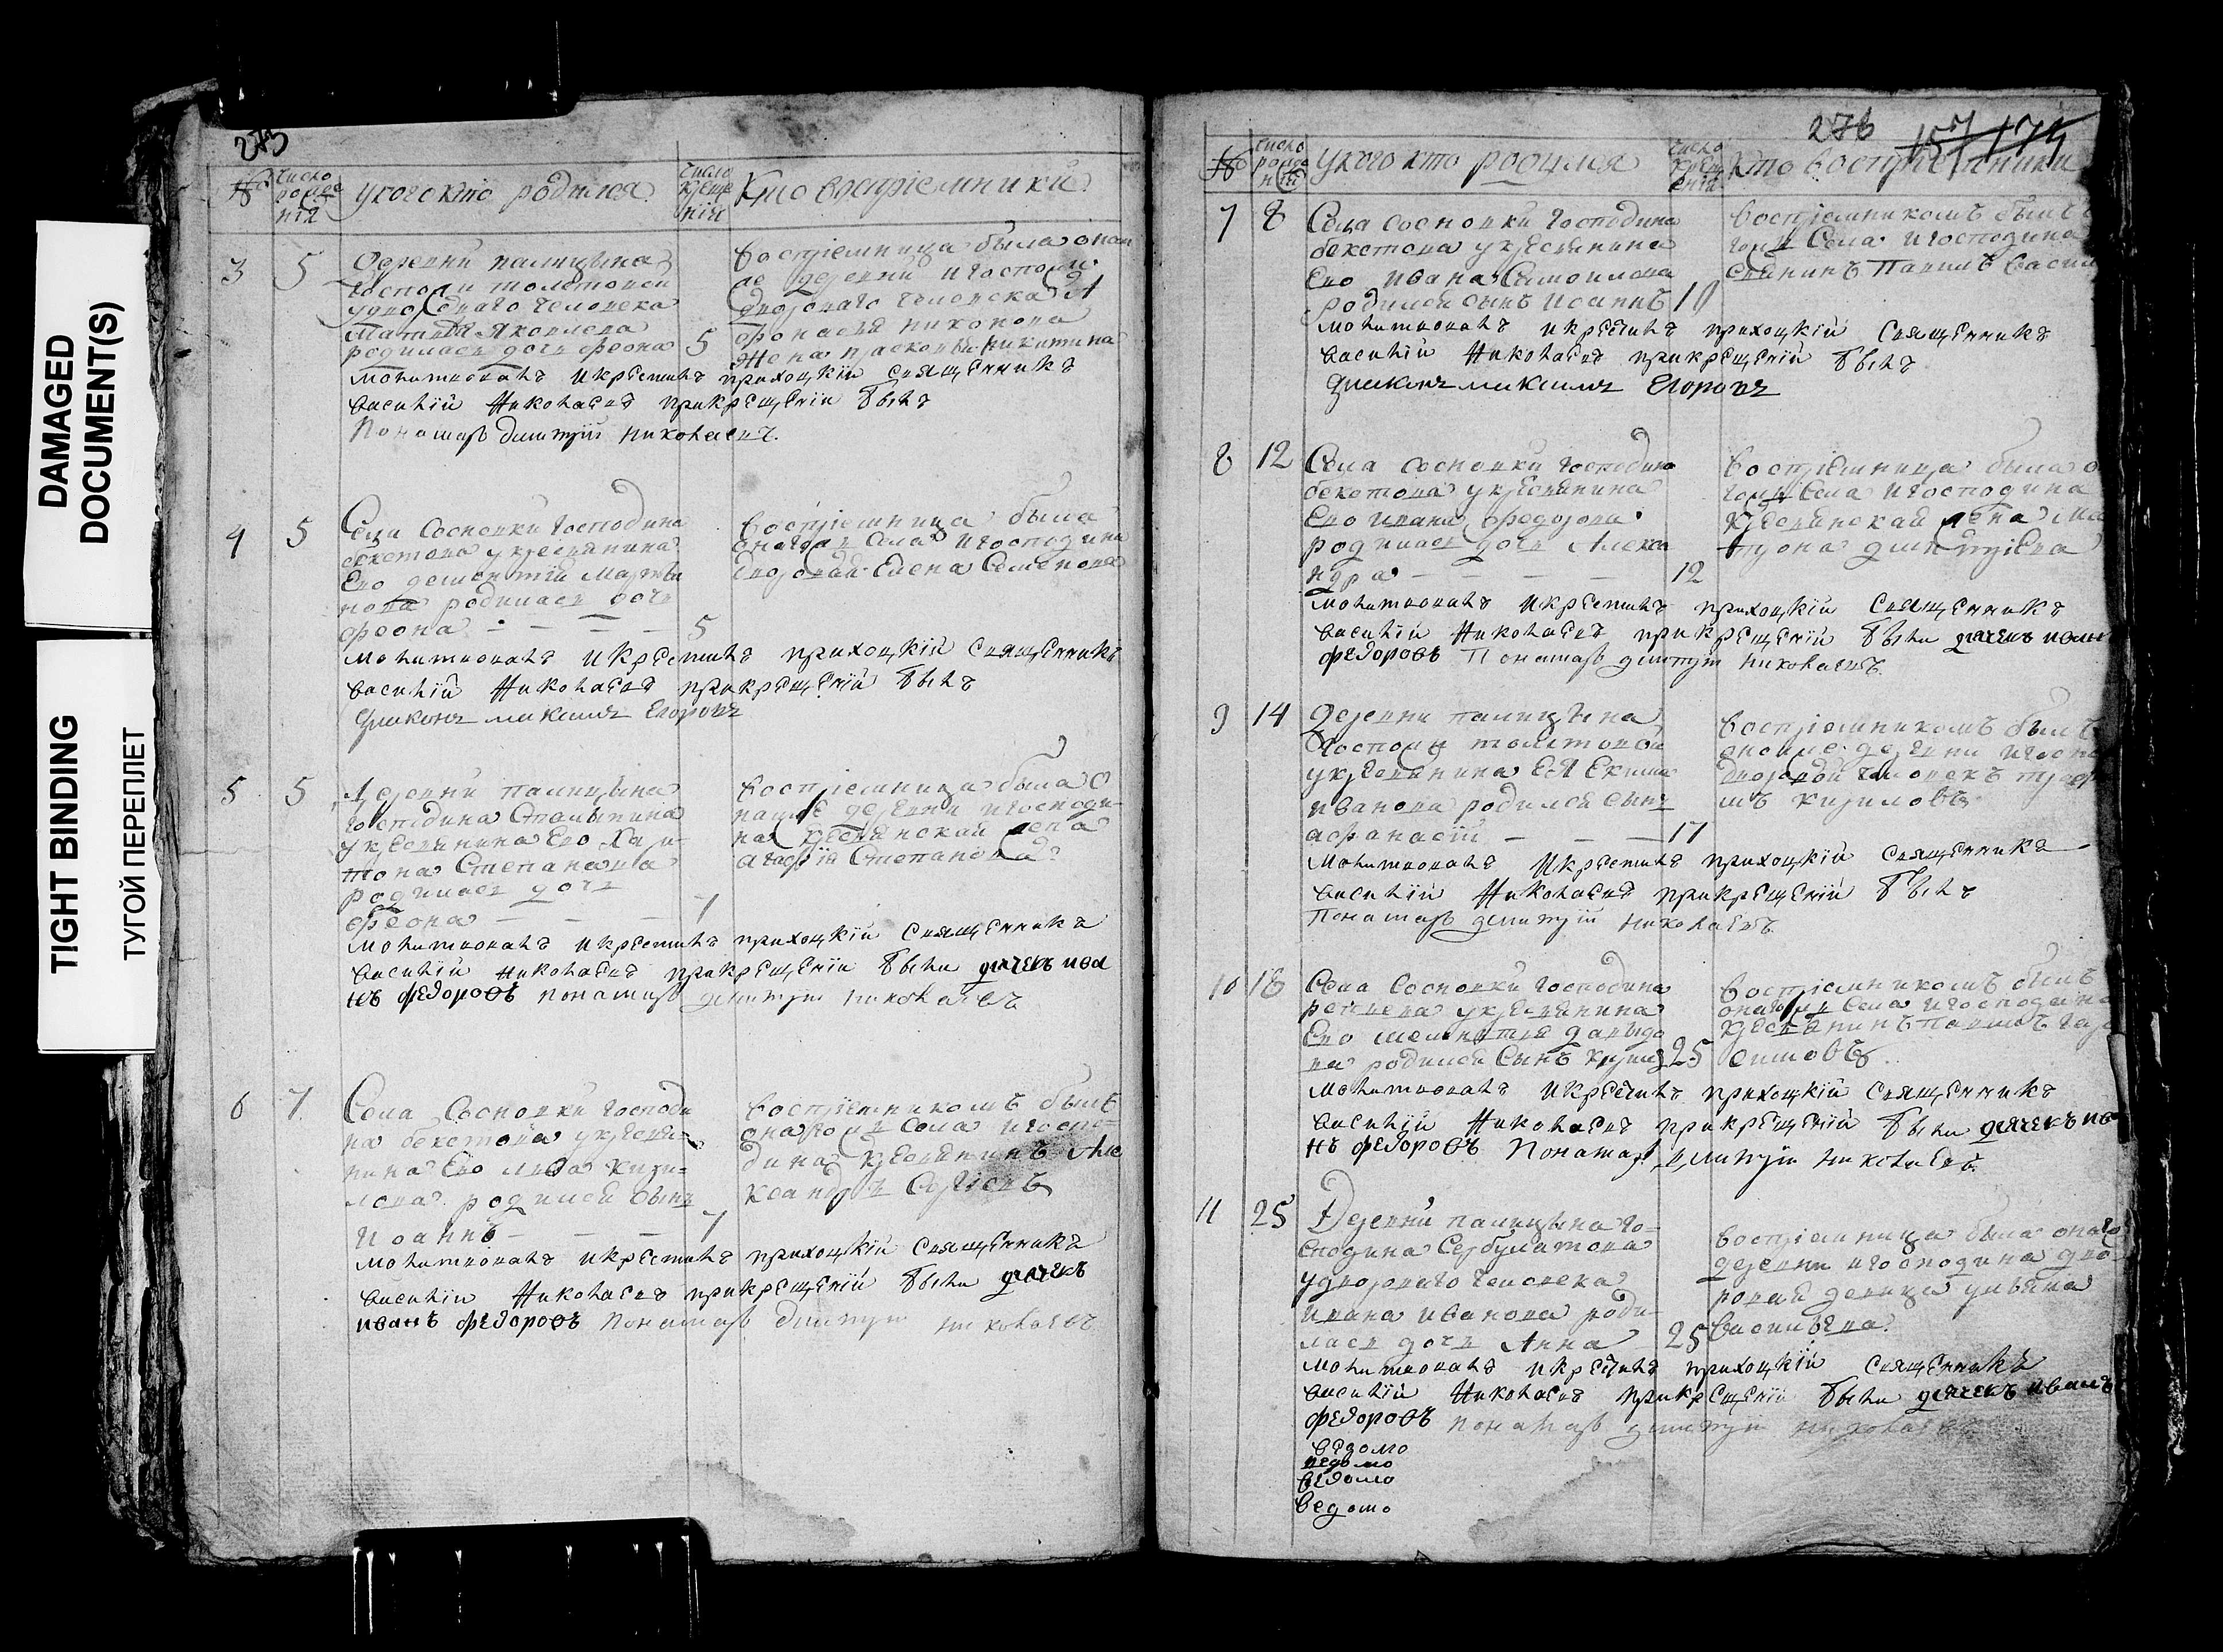 DAMAGED
DOCUMENT(S)
TIGHT BINDING
ТУГОЙ ПЕРЕПЛЕТ
275
№
число рожде нія
у кого кто родился
число креще нія
Кто воспріемники
3 5
Деревни палицына
госпожи толстовой
удворового человека
Яковлева
родилась дочь феона 5
воспріемница была оной
же деревни и госпожи
дворового человека А
фонасья никонова
жена прасковья никитина
молитвовалъ и крестилъ приходкій священникъ
василій Николаевъ при крещеніи былъ
Пономарь димитрій николаевъ
4 5
Села Сосновки Господина
бекетова у крестьянина
Ево дементія Марты
нова родилась дочь
феона — — — — 5
воспріемница была
оного же села и господина
дворовая Елена Семенова
молитвовалъ и крестилъ приходкій священникъ
василій Николаевъ при крещеніи былъ
Диаконъ максимъ Егоровъ
5 5
Деревни палицына
господина
у крестьянина Ево Хари
тона Степанова
родилась дочь
феона — — — 7
воспріемница была о
ная же деревни и господи
на крестьянская жена
агафія Степанова
молитвовалъ и крестилъ приходкій священникъ
василій николаевъ при крещеніи были дьячекъ ива
нъ федоровъ пономарь димитрій николаевъ
6 7
Села Сосновки господи
на бекетова у крестья
нина Ево льва кири
лова родился сынъ
Иоаннъ — — — 7
воспріемникомъ былъ
оного же села и госпо
дина крестьянинъ Але
ксандръ Сергіевъ
молитвовалъ и крестилъ приходкій священникъ
василій Николаевъ при крещеніи были дьячекъ
иванъ федоровъ пономарь димитрій николаевъ
276 157 174
№
число рожде нія
у кого кто родился
число креще нія
Кто воспріемники
7 8
Села сосновки господина
бекетова у крестьянина
Ево ивана Самойлова
родился сынъ иоаннъ 10
воспріемникомъ былъ
села и господина
Павелъ
молитвовалъ и крестилъ приходкій священникъ
василій Николаевъ при крещеніи былъ
Диаконъ максимъ Егоровъ
8 12
Села сосновки господина
бекетова у крестьянина
Ево ивана федорова
родилась дочь Алекса
ндра — — — — 12
воспріемница была
села и господина
крестьянская жена Ма
трона димитріева
молитвовалъ и крестилъ приходкій священникъ
василій Николаевъ при крещеніи были дьячекъ иванъ
федоровъ Пономарь димитрій николаевъ
9 14
Деревни палицына
Госпожи толстовой
у крестьянина Ея Екима
иванова родился сынъ
афанасій — — — 17
воспріемникомъ былъ
оной же деревни
дворовой человекъ
кириловъ
молитвовалъ и крестилъ приходкій священникъ
василій Николаевъ при крещеніи былъ
Пономарь димитрій николаевъ
10 18
Села Сосновки господина
репьева у крестьянина
Ево давыдо
ва родился Сынъ 25
воспріемникомъ былъ
оного же села и господина
крестьянинъ Павелъ
молитвовалъ и крестилъ приходкій священникъ
василій Николаевъ при крещеніи были дьячекъ ива
нъ федоровъ Пономарь димитрій николаевъ
11 25
Деревни палицына го
сподина Сербулатова
у дворового человека
ивана иванова роди
лась дочь Анна 25
воспріемница была оной
деревни и господина дво
ровая девица ульяна
васильева
молитвовалъ и крестилъ приходкій священникъ
василій Николаевъ при крещеніи были дьячекъ иванъ
федоровъ пономарь димитрій николаевъ
ведомо
ведомо
ведомо
ведомо